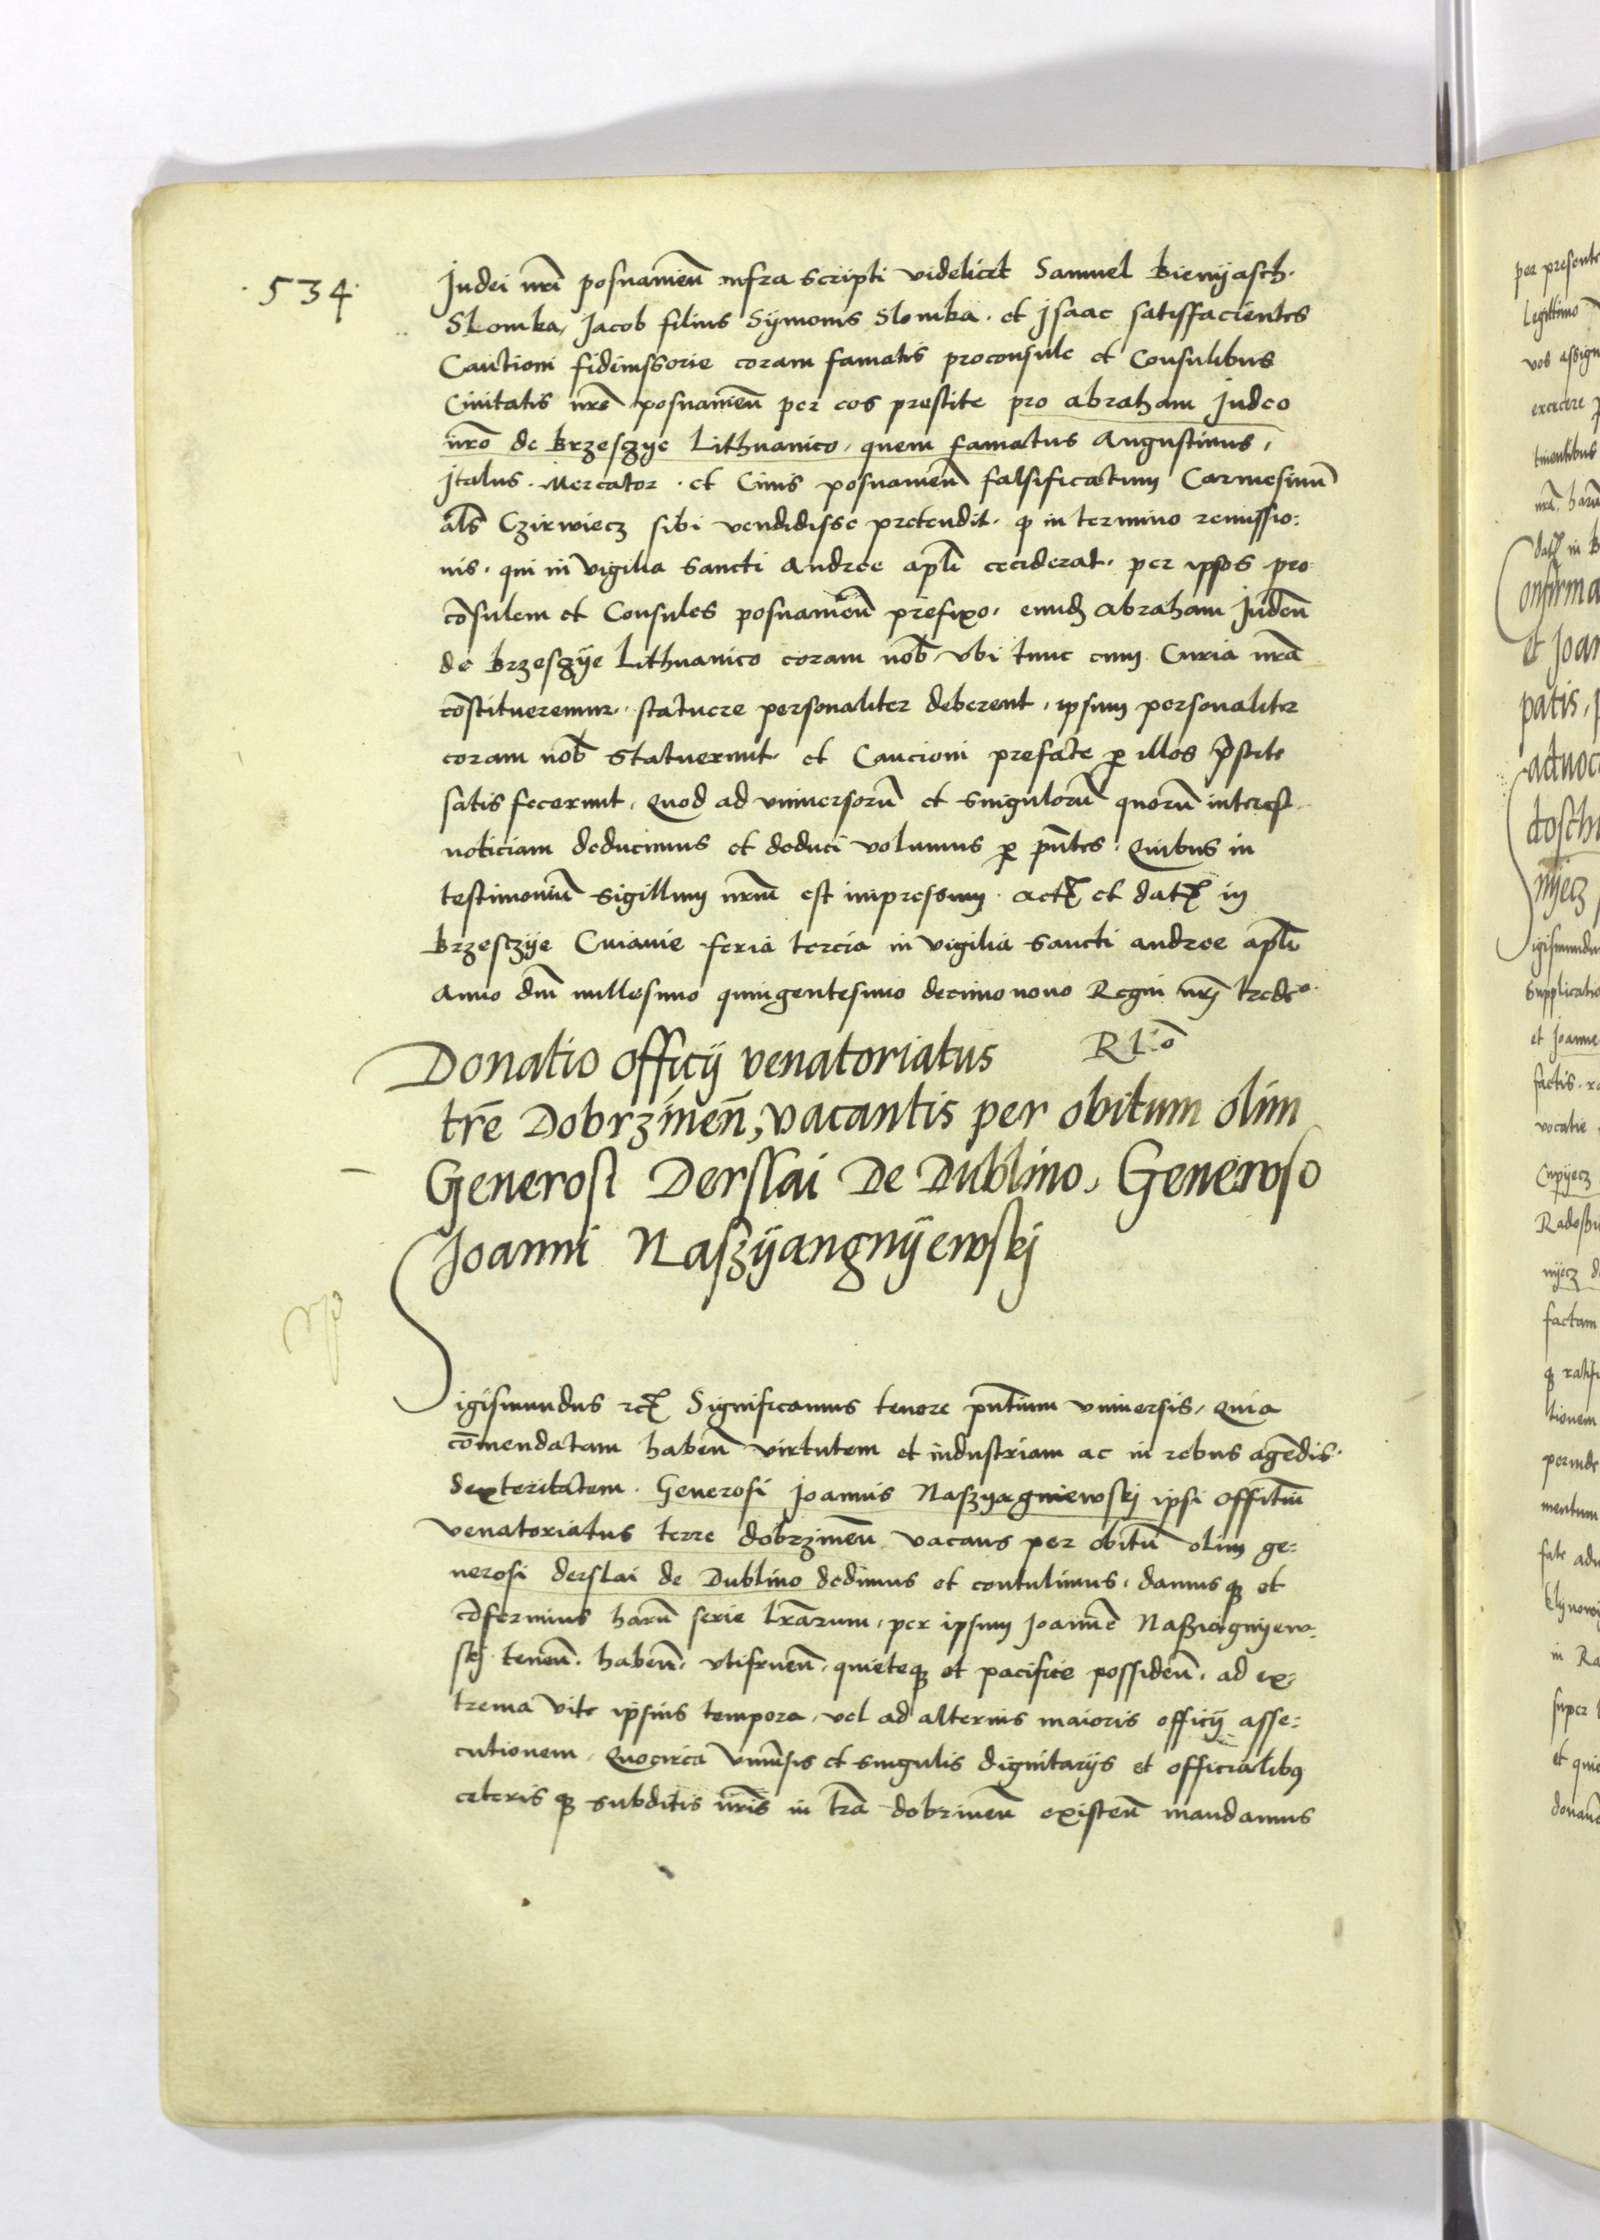 ·534·
Judei nrĩ posnanieñ infra scripti videlicet Samuel Bienyasch·
Slomka, Jacob filius Symonis Slomka· et Jsaac satisfacientes
Cautioni fideiussorie coram famatis proconsule et Consulibus
Civitatis nrẽ posnanieñ per eos prestite pro abraham Judeo
nrõ de Brzesczye Lithuanico, quem famatus Augustinus,
Jtalus· Mercator· et Civis posnanieñ falsificatum Carmesinũ
als̃ Czirwiecz sibi vendidisse pretendit· q̃ in termino remissio:
nis· qui in vigilia Sancti Andree apl̃i ceciderat· per ipsos pro
cõsulem et Consules posnanieñ prefixo, eundẽ Abraham Judeũ
de Brzesczye Lithuanico coram nob̃, vbi tunc cum Curia nrã
cõstitueremur· statuere personaliter deberent, ipsum personaliter
coram nob̃ statuerunt· et Caucioni prefate p̱ illos p̃stite
satis fecerunt, Quod ad vniversorũ et singulorũ quorũ interest
noticiam deducimus et deduci volumus p̱ pñtes· Quibus in
testimoniũ sigillum nrũm est impressum· actꝫ et datꝫ in
Brzesczye Cuiavie feria tercia in vigilia Sancti andree apl̃i
Anno dñi millesimo quingentesimo decimo nono Regni nrĩ tredᵒ·
Donatio officij venatoriatus Rl:õ
trẽ Dobrzineñ, vacantis per obitum olim
Generosi Derslai De Dublino, Generoso
Joanni Naszyangnyewskj
Sigismundus rcꝫ Significamus tenore pñtium vniversis, Quia
cõmendatam habeñ virtutem et industriam ac in rebus agẽdis·
dexteritatem· Generosi Joannis Naszyagniewskj ipsi offitiũ
venatoriatus terre dobrzineñ vacans per obitũ olim ge:
nerosi derslai de Dublino dedimus et contulimus, damusqꝫ et
cõferimus harũ serie lrãrum, per ipsum Joannẽ Naszyagnyew:
skj teneñ· habeñ, vtifrueñ, quieteqꝫ et pacifice possideñ, ad ex:
trema vite ipsius tempora, vel ad alterius maioris officij asse:
cutionem, Quocirca vniũsis et singulis dignitarijs et officialibꝰ
ceteris qꝫ subditis nrĩs in trã dobrineñ existeñ mandamus